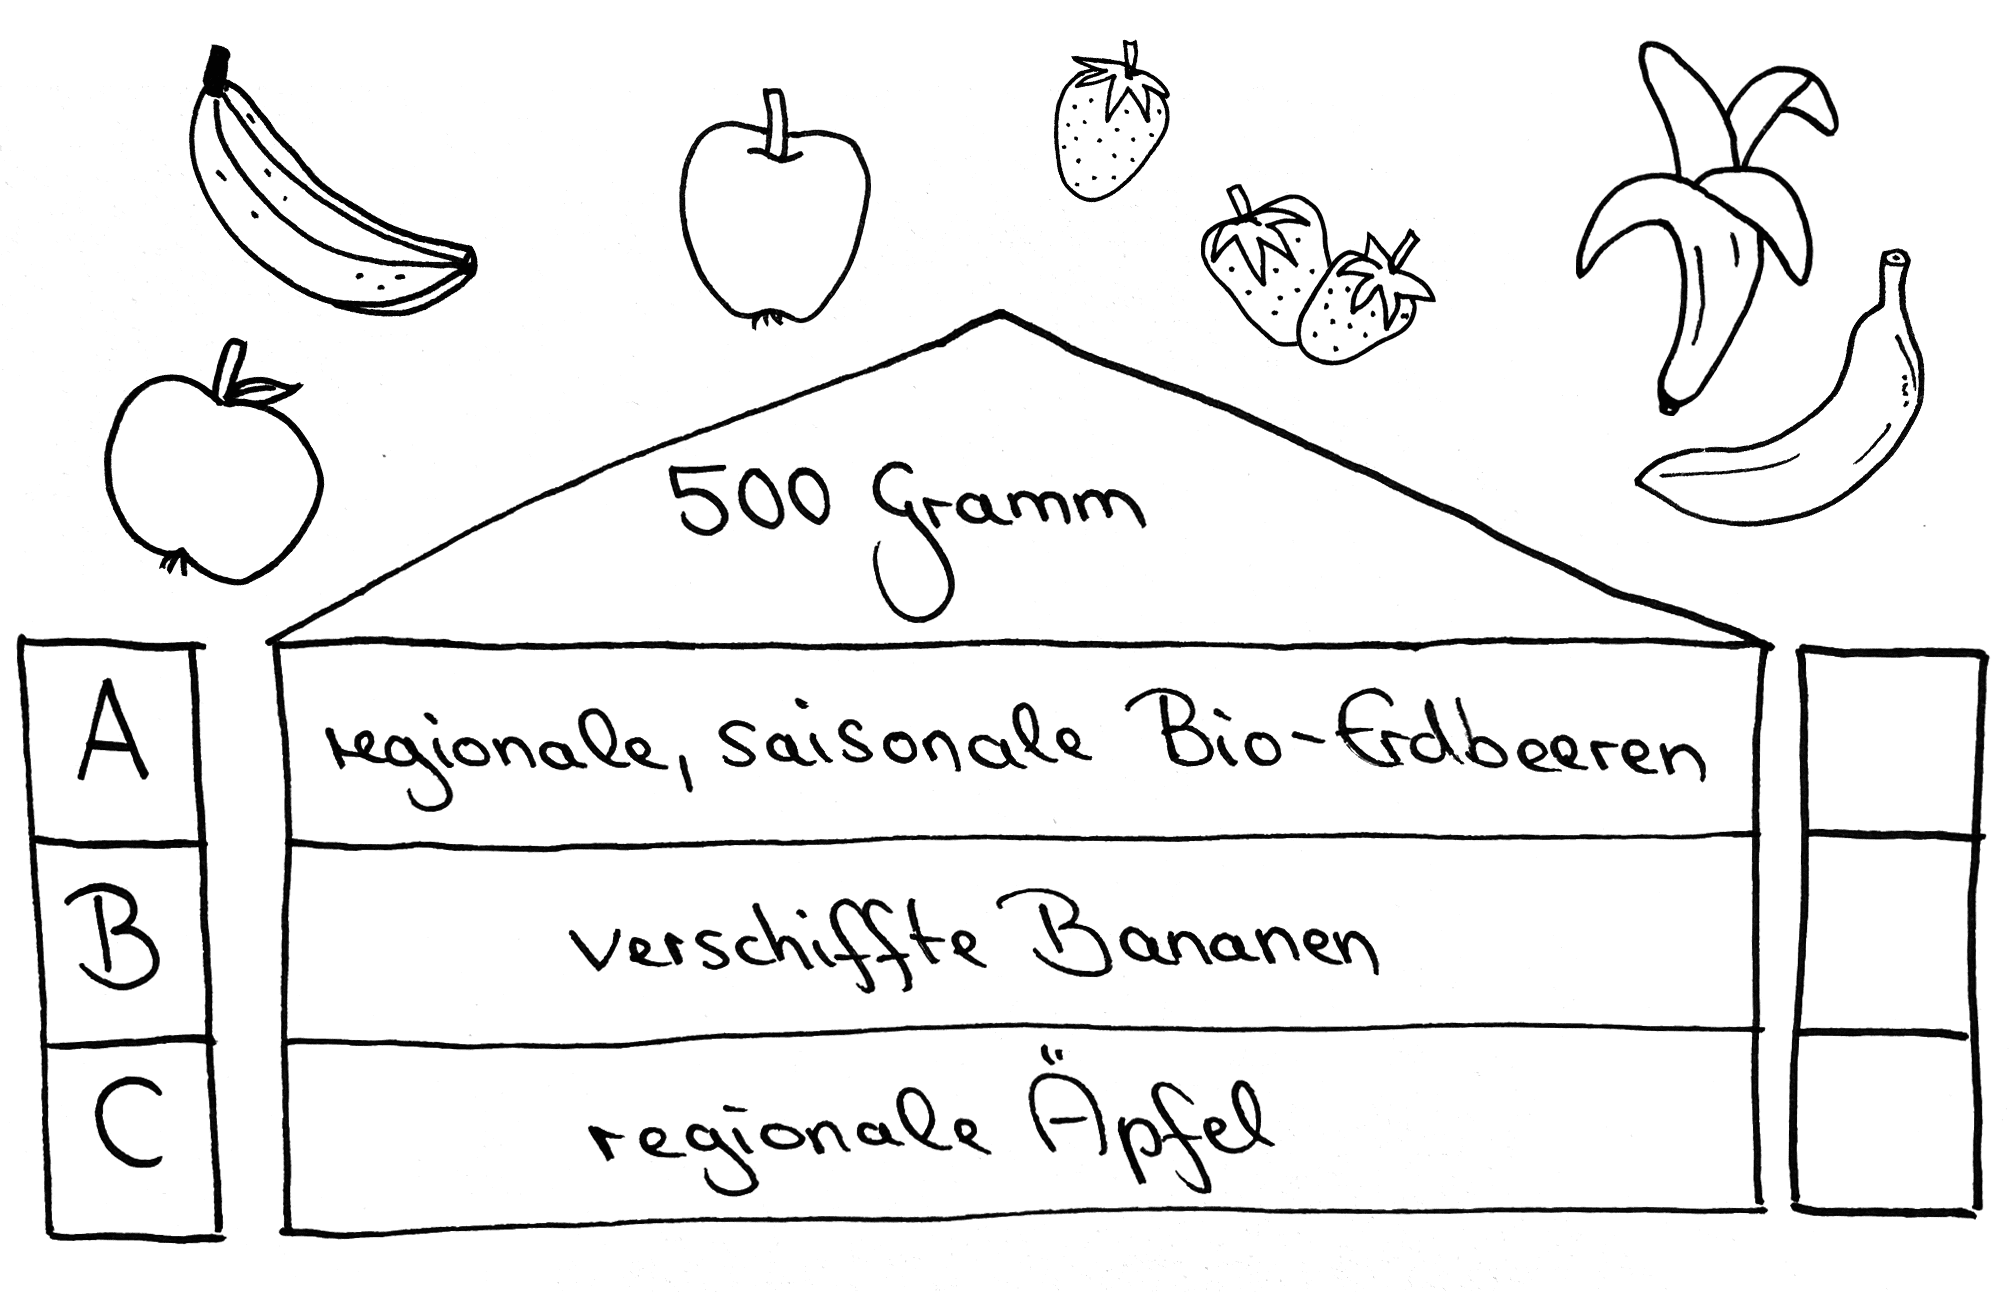 500 Gramm
A regionale, saisonale Bio-Erdbeeren
B verschiffte Bananen
C regionale Äpfel